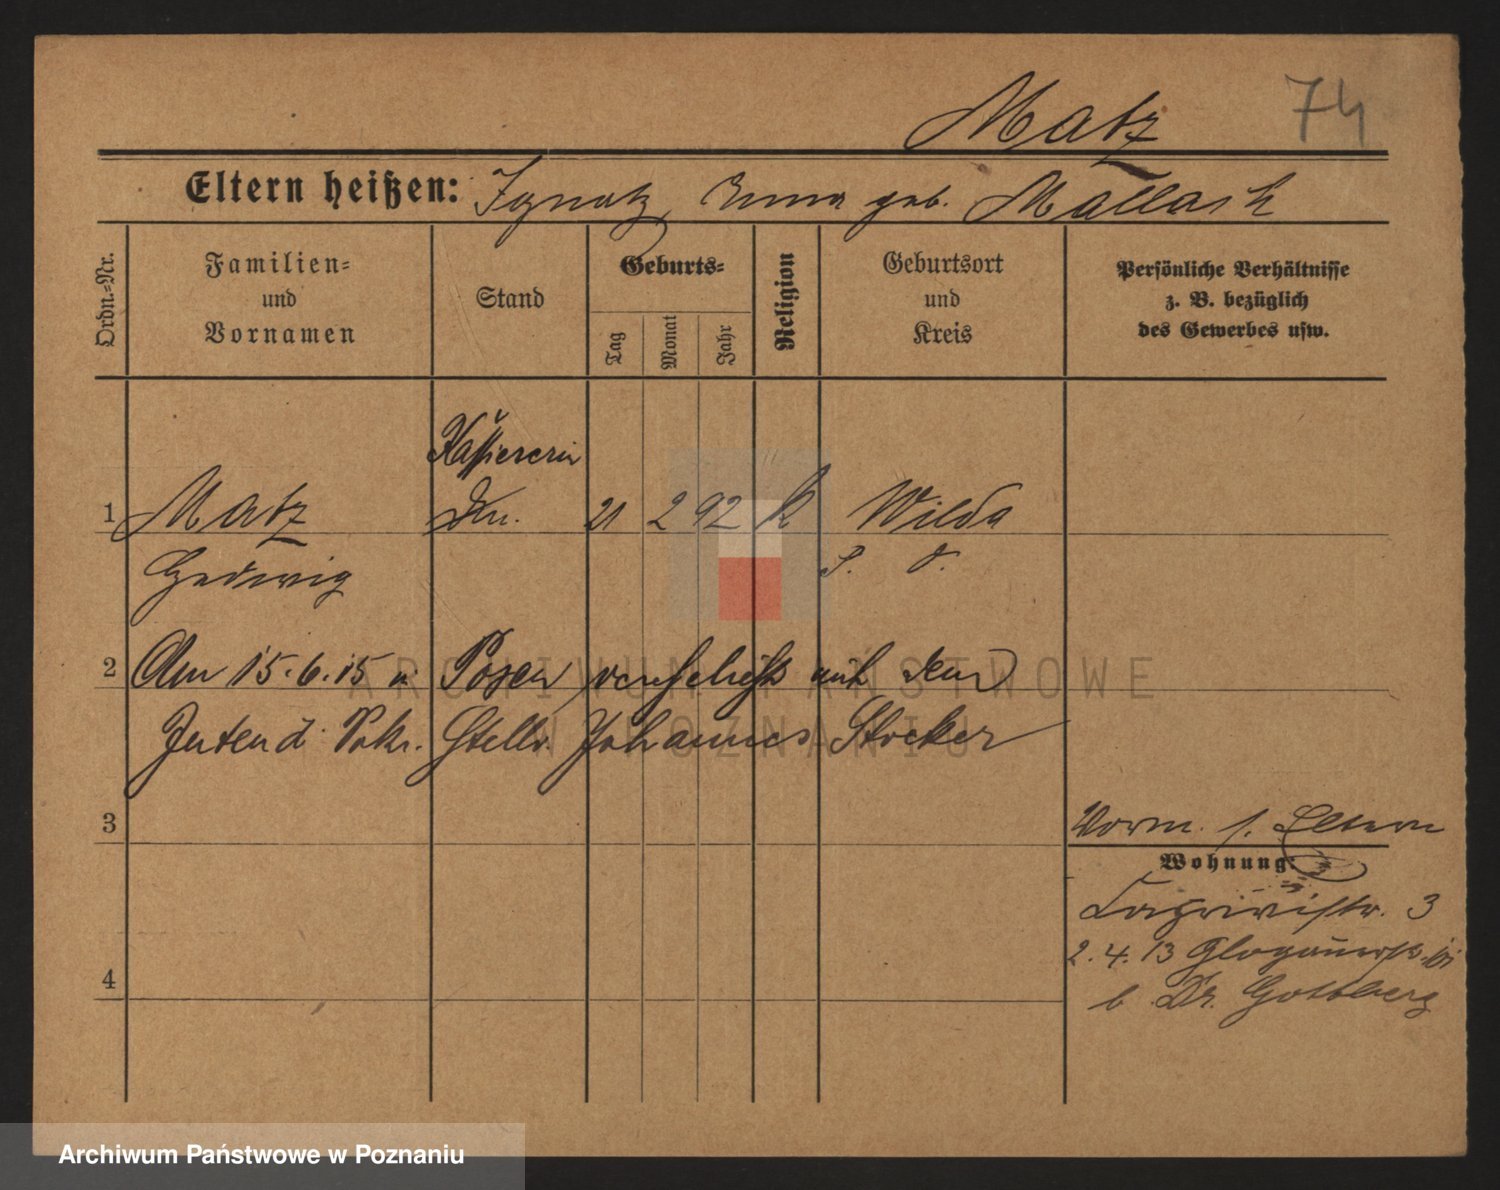 Matz 74
Eltern heißen: Ignatz, Emma geb. Mallach
Ordn.-Nr.
Familien-
und
Vornamen
Stand
Geburts-
Tag
Monat
Jahr
Religion
Geburtsort
und
Kreis
Persönliche Verhältnisse
z. B. bezüglich
des Gewerbes usw.
Kassiererin
1 Matz 21 2 92 K Wilda
Hedwig
2 Am 15.6.15 in Posen verehelicht mit dem
Intend. Sekr. Stellv. Johannes Stocker
3
Vorm. s. Eltern
Wohnung:
3
4
2.4.13 Glogauerstr.
b. Dr. Goldberg
ARCHIWUM PAŃSTWOWE
W POZNANIU
Archiwum Państwowe w Poznaniu